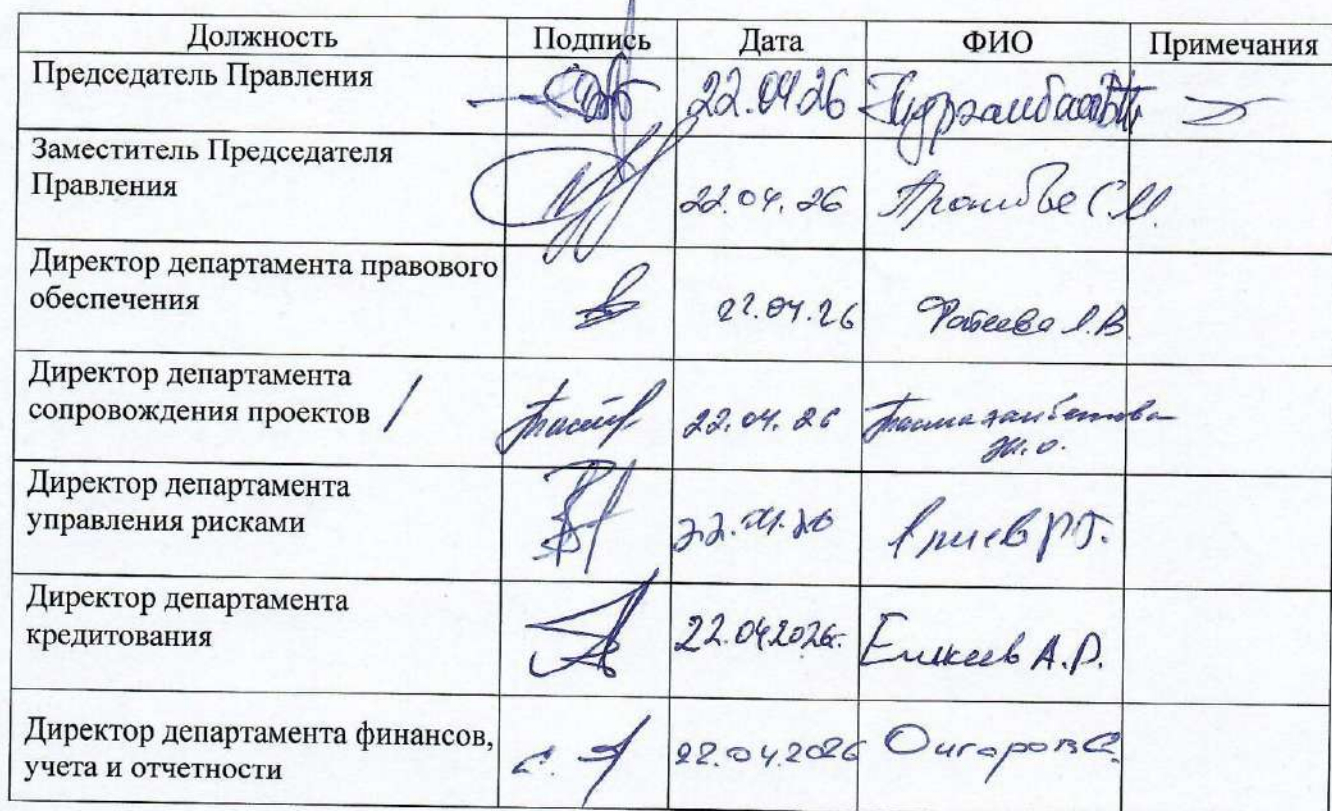 Должность Подпись Дата ФИО Примечания
Председатель Правления 22.04.26
Заместитель Председателя
Правления 22.04.26 С.М.
Директор департамента правового
обеспечения 22.04.26 Фатеева Л.В.
Директор департамента
сопровождения проектов 22.04.26 Тасмагамбетова
Ж.О.
Директор департамента
управления рисками 22.04.26
Директор департамента
кредитования 22.04.2026г. Еликеев А.Р.
Директор департамента финансов,
учета и отчетности 22.04.2026 Онгаров С.